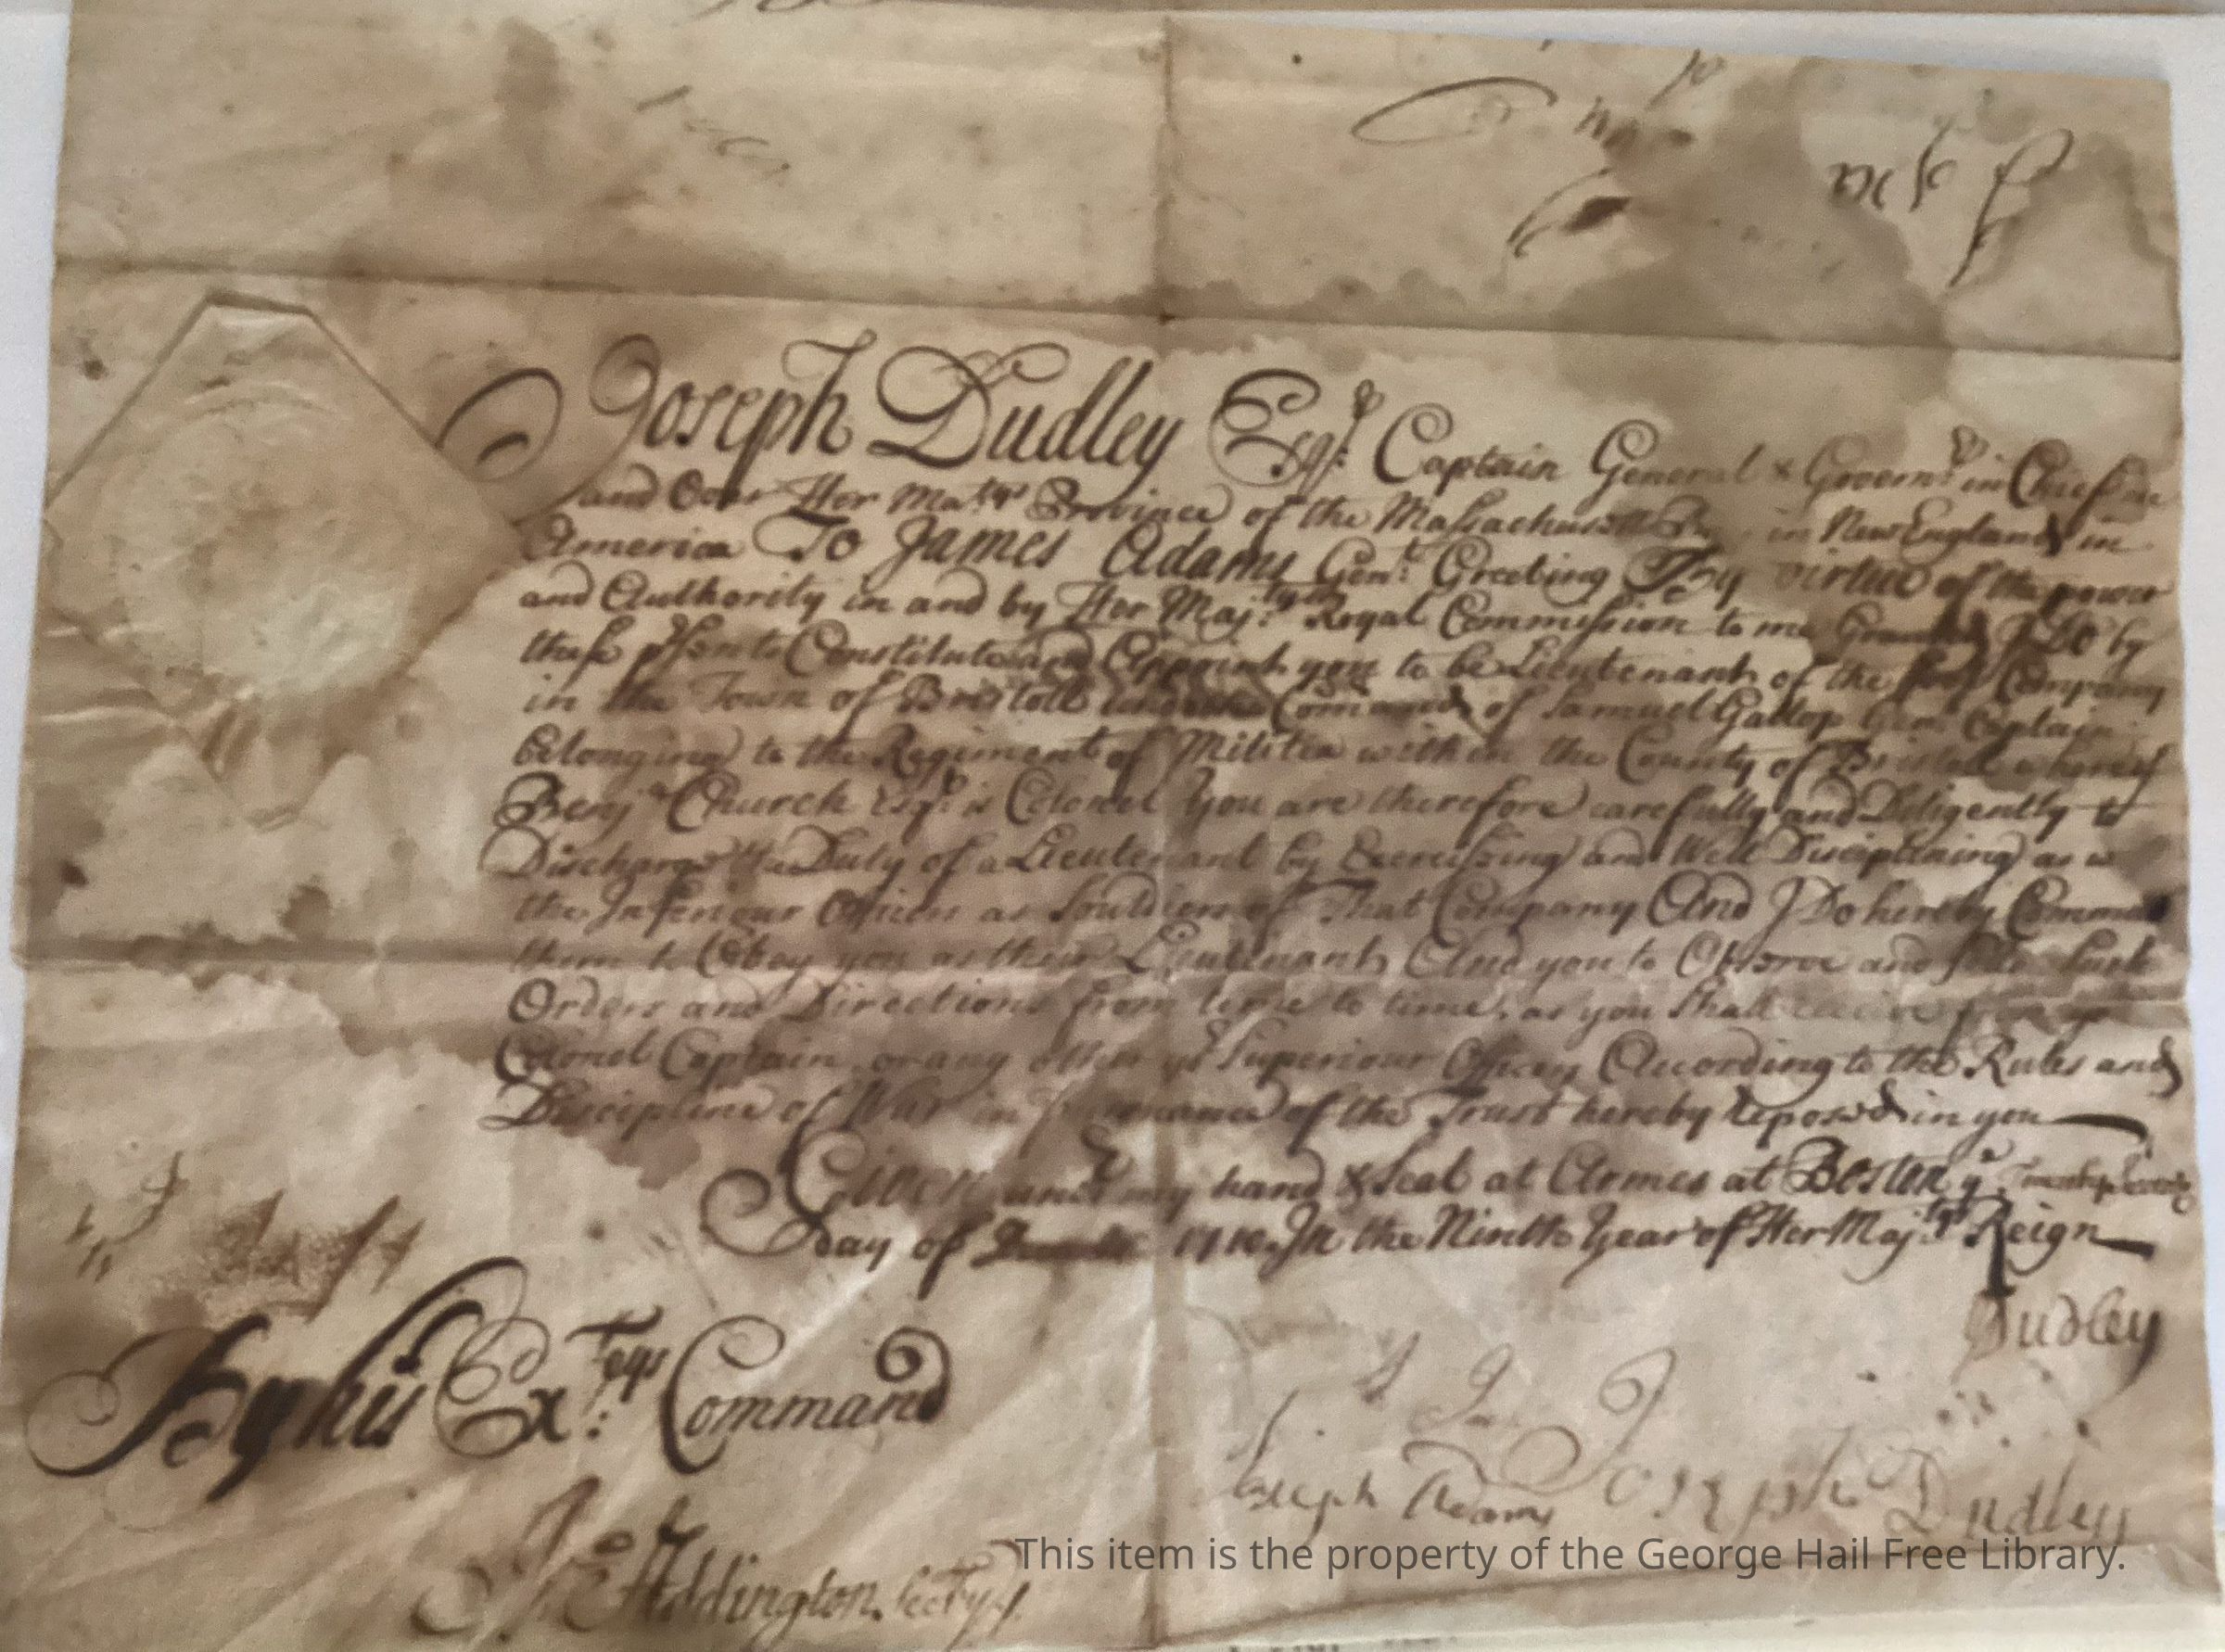 Joseph Dudley Esqr. Captain General & Governr in Chief in
and Over Her Matys Province of the Massachusetts Bay in New England in
America To James Adams Gent. Greeting By virtue of the power
and Authority in and by Her Majtys Royal Commission to me Granted I Do by
these pssents Constitute and Appoint you to be Lieutenant of the foot Company
in the Town of Bristoll under the Comand of Samuel Gallop Gent Captain
belonging to the Regiment of Militia within the County of Bristoll whereof
Benja Church Esqr. is Colonel You are therefore carefully and Diligently to
Discharge the Duty of a Lieutenant by Exercising and Well Disciplining as w
the Inferiour Officers as Souldiers of That Company And I Do hereby Comma
them to Obey you as their Lieutenant, And you to Observe and follow Such
Orders and Directions from time to time, as you Shall receive from yr
Colonel Captain or any other yr Superiour Officer According to the Rules and
Discipline of War in of the Trust hereby Reposed in you
Given under my hand & Seal at Armes at Boston ye Twenty
day of 1710. In the Ninth Year of Her Majtys Reign
Dudley
By his Ex:cys Command
Joseph Adams Joseph Dudley
Js Addington, Secry
This item is the property of the George Hail Free Library.